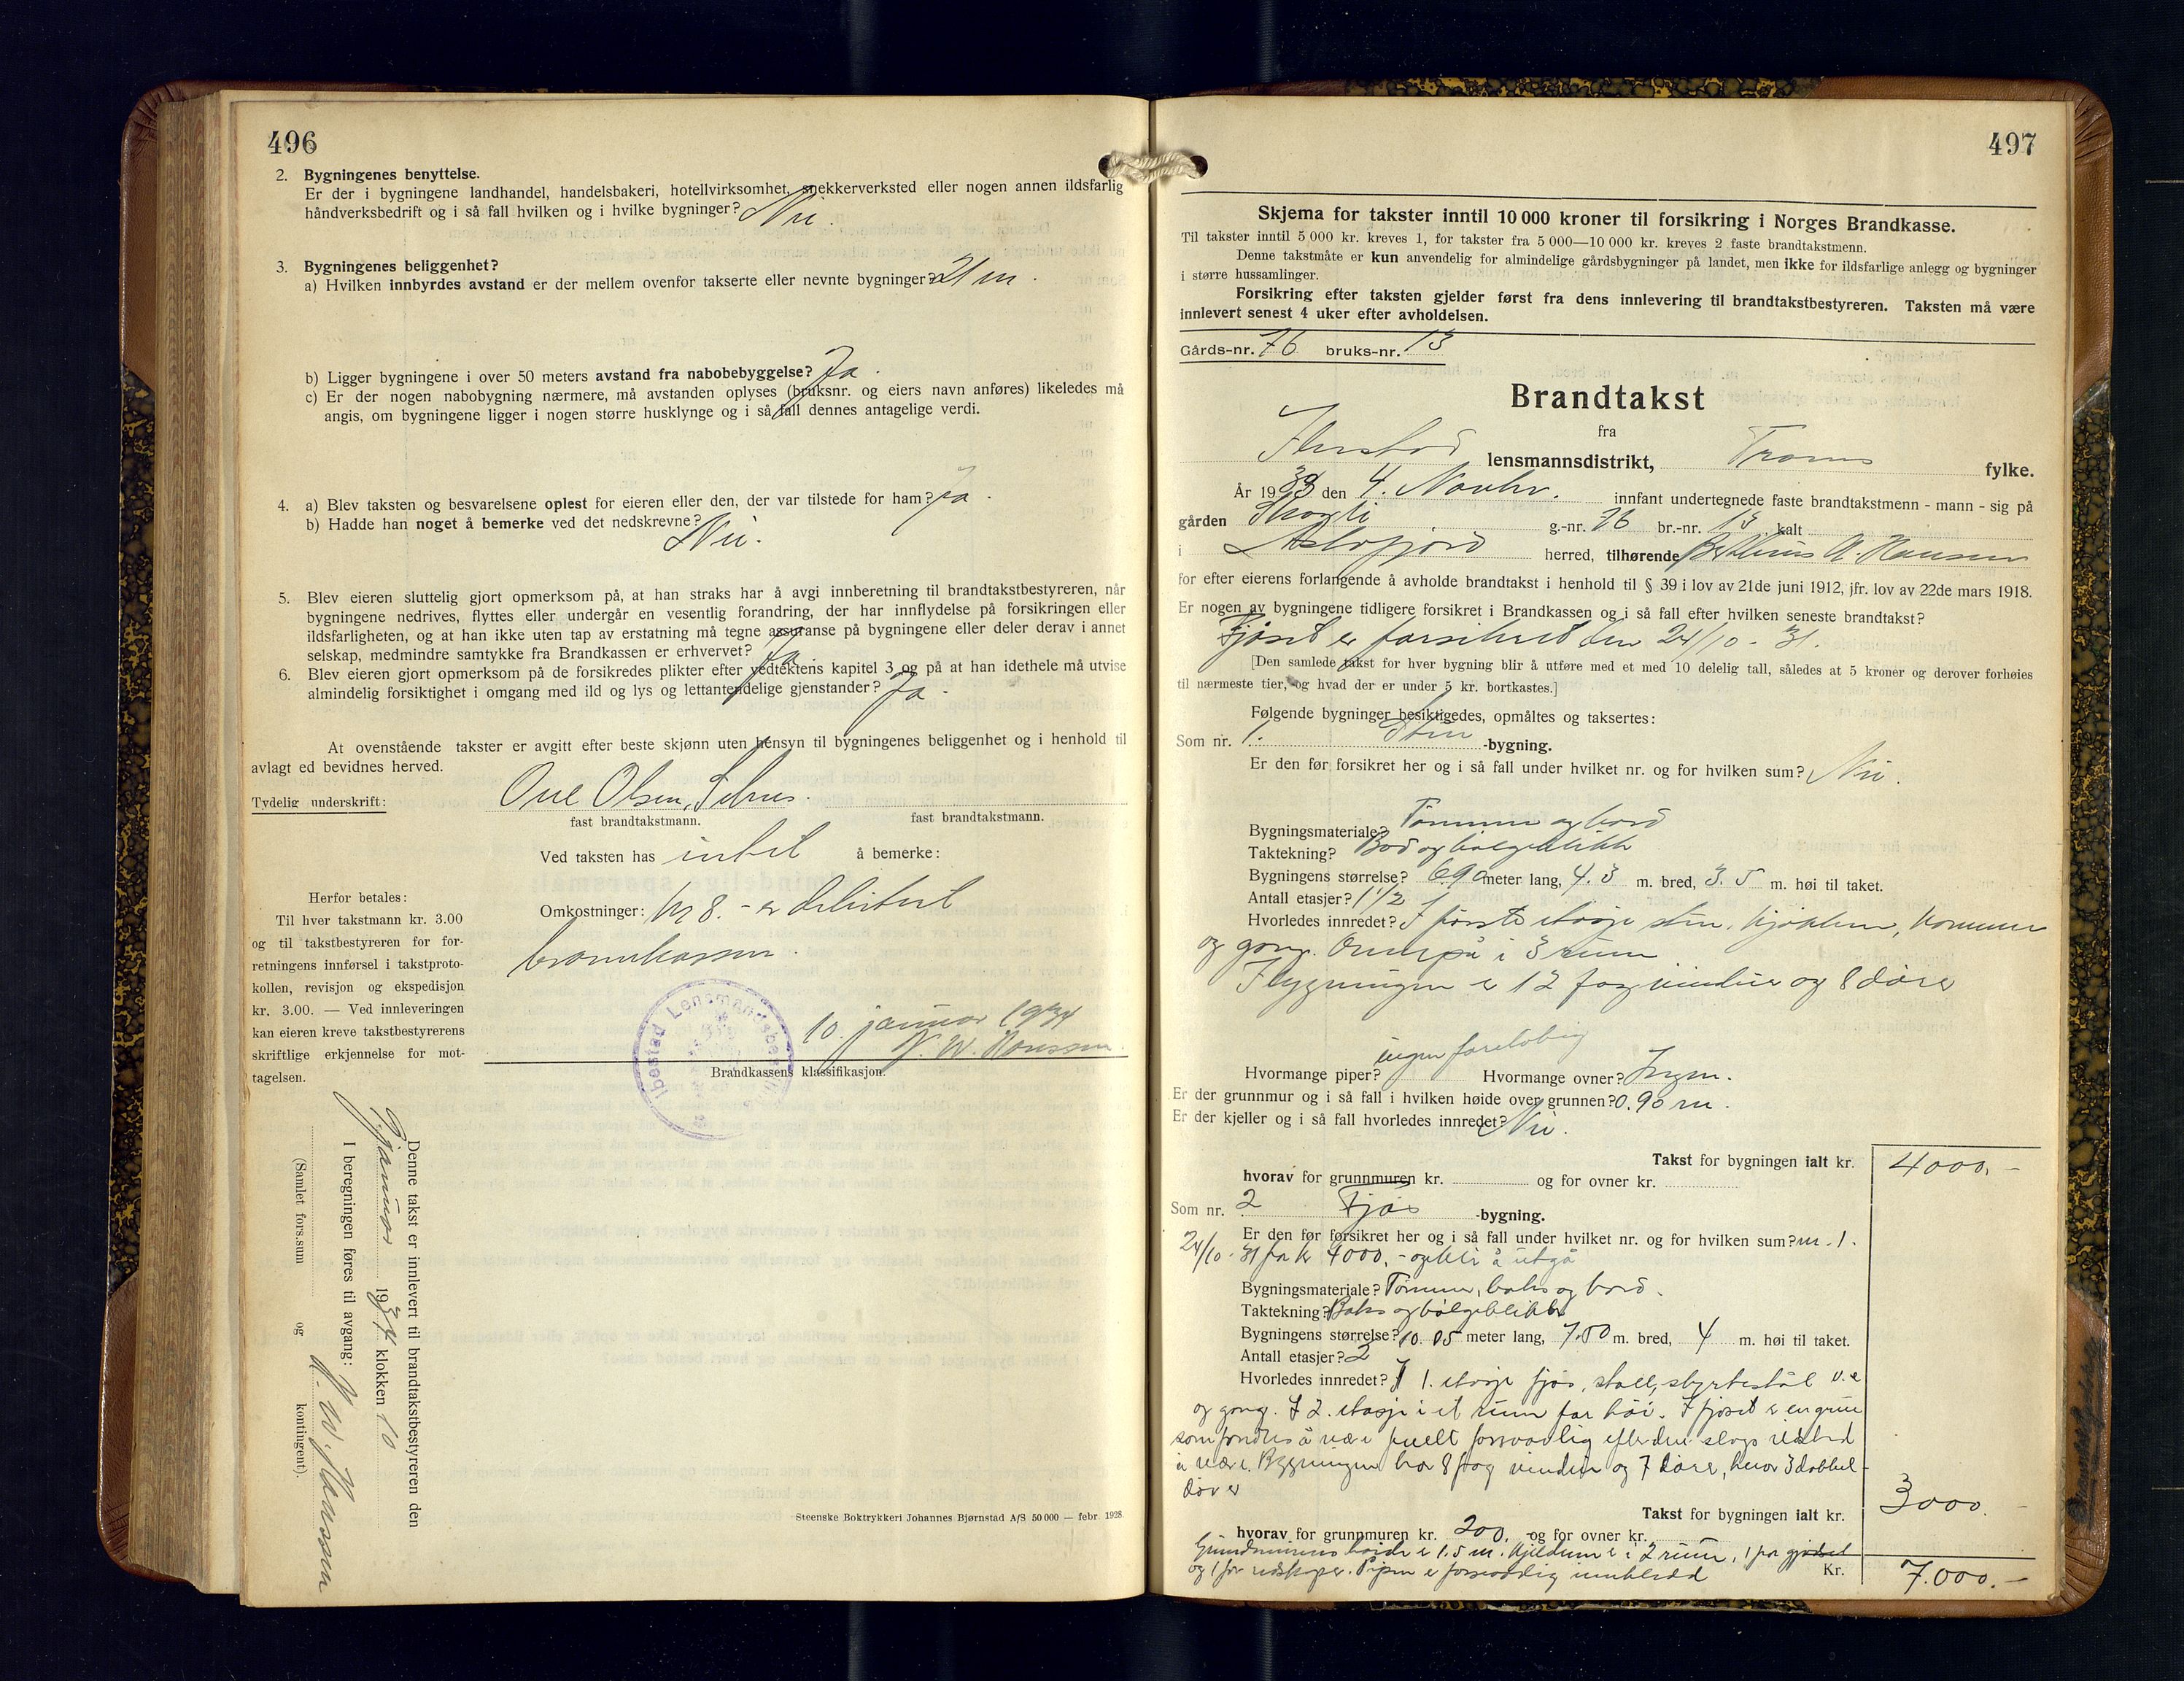 496
2. Bygningenes benyttelse.
Er der i bygningene landhandel, handelsbakeri, hotellvirksomhet, snekkerverksted eller nogen annen ildsfarlig
håndverksbedrift og i så fall hvilken og i hvilke bygninger? Nei.
3. Bygningenes beliggenhet?
a) Hvilken innbyrdes avstand er der mellem ovenfor takserte eller nevnte bygninger? 21 m.
b) Ligger bygningene i over 50 meters avstand fra nabobebyggelse? Ja.
c) Er der nogen nabobygning nærmere, må avstanden oplyses (bruksnr. og eiers navn anføres) likeledes må
angis, om bygningene ligger i nogen større husklynge og i så fall dennes antagelige verdi.
4. a) Blev taksten og besvarelsene oplest for eieren eller den, der var tilstede for ham? Ja.
b) Hadde han noget å bemerke ved det nedskrevne? Nei.
5. Blev eieren sluttelig gjort opmerksom på, at han straks har å avgi innberetning til brandtakstbestyreren, når
bygningene nedrives, flyttes eller undergår en vesentlig forandring, der har innflydelse på forsikringen eller
ildsfarligheten, og at han ikke uten tap av erstatning må tegne assuranse på bygningene eller deler derav i annet
selskap, medmindre samtykke fra Brandkassen er erhvervet? Ja.
6. Blev eieren gjort opmerksom på de forsikredes plikter efter vedtektens kapitel 3 og på at han idethele må utvise
almindelig forsiktighet i omgang med ild og lys og lettantendelige gjenstander? Ja.
At ovenstående takster er avgitt efter beste skjønn uten hensyn til bygningenes beliggenhet og i henhold til
avlagt ed bevidnes herved.
Tydelig underskrift: Ove Olsen,
fast brandtakstmann. fast brandtakstmann.
Ved taksten has intet å bemerke:
Herfor betales:
Til hver takstmann kr. 3.00
og til takstbestyreren for for-
retningens innførsel i takstproto-
kollen, revisjon og ekspedisjon
kr. 3.00. — Ved innleveringen
kan eieren kreve takstbestyrerens
skriftlige erkjennelse for mot-
tagelsen.
Omkostninger: kr 8.- er debitert
brannkassen.
Ibestad Lensmandsbestilling
10. januar 1934
N. W. Hanssen.
Brandkassens klassifikasjon.
Denne takst er innlevert til brandtakstbestyreren den
januar 1934 klokken 10
I beregningen føres til avgang: N. W. Hanssen
(Samlet fors.sum og kontingent).
Steenske Boktrykkeri Johannes Bjørnstad A/S 50 000 — febr. 1928.
497
Skjema for takster inntil 10 000 kroner til forsikring i Norges Brandkasse.
Til takster inntil 5 000 kr. kreves 1, for takster fra 5 000—10 000 kr. kreves 2 faste brandtakstmenn.
Denne takstmåte er kun anvendelig for almindelige gårdsbygninger på landet, men ikke for ildsfarlige anlegg og bygninger
i større hussamlinger.
Forsikring efter taksten gjelder først fra dens innlevering til brandtakstbestyreren. Taksten må være
innlevert senest 4 uker efter avholdelsen.
Gårds-nr. 76 bruks-nr. 13
Brandtakst
fra
Ibestad lensmannsdistrikt, Troms fylke.
År 1933 den 4. Novbr. innfant undertegnede faste brandtakstmenn - mann - sig på
gården g.-nr. 76 br.-nr. 13 kalt
i Astafjord herred, tilhørende A. Hansen
for efter eierens forlangende å avholde brandtakst i henhold til § 39 i lov av 21de juni 1912, jfr. lov av 22de mars 1918.
Er nogen av bygningene tidligere forsikret i Brandkassen og i så fall efter hvilken seneste brandtakst?
Fjøset er forsikret den 24/10 - 31.
[Den samlede takst for hver bygning blir å utføre med et med 10 delelig tall, således at 5 kroner og derover forhøies
til nærmeste tier, og hvad der er under 5 kr. bortkastes.]
Følgende bygninger besiktigedes, opmåltes og taksertes:
Som nr. 1. Stue -bygning.
Er den før forsikret her og i så fall under hvilket nr. og for hvilken sum? Nei.
Bygningsmateriale? Tømmer og bord
Taktekning? Bord og bølgeblikk
Bygningens størrelse? 6.90 meter lang, 4.3 m. bred, 3.5 m. høi til taket.
Antall etasjer? 1 1/2
Hvorledes innredet? I første etasje stue, kjøkken, kammer
og gang. Ovenpå i 3 rum
I bygningen er 12 fag vinduer og 8 dører
Hvormange piper? ingen foreløbig Hvormange ovner? Ingen.
Er der grunnmur og i så fall i hvilken høide over grunnen? 0.90 m.
Er der kjeller og i så fall hvorledes innredet? Nei.
Takst for bygningen ialt kr. 4000.-
hvorav for grunnmuren kr. og for ovner kr.
Som nr. 2 Fjøs -bygning.
Er den før forsikret her og i så fall under hvilket nr. og for hvilken sum? nr. 1.
24/10 - 31 for kr 4000.- og blir å utgå
Bygningsmateriale? Tømmer, baks og bord.
Taktekning? Baks og bølgeblikk
Bygningens størrelse? 10.05 meter lang, 7.50 m. bred, 4 m. høi til taket.
Antall etasjer? 2
Hvorledes innredet? I 1. etasje fjøs, stall, v.c
og gang. I 2. etasje i et rum for høi. I fjøset er en grue
som fandtes å være fuelt forsvarlig efter den slags ildsted
å være. Bygningen har 8 fag vinduer og 7 dører, hvor 3 dobbel-
dører
Takst for bygningen ialt kr. 3000.-
hvorav for grunnmuren kr. 200.- og for ovner kr.
Grundmurens høide er 1.5 m. Kjelderen er i 2 rum, 1 for gjødsel
og 1 for redskaper. Pipen er forsvarlig innkledd
Kr. 7.000.-